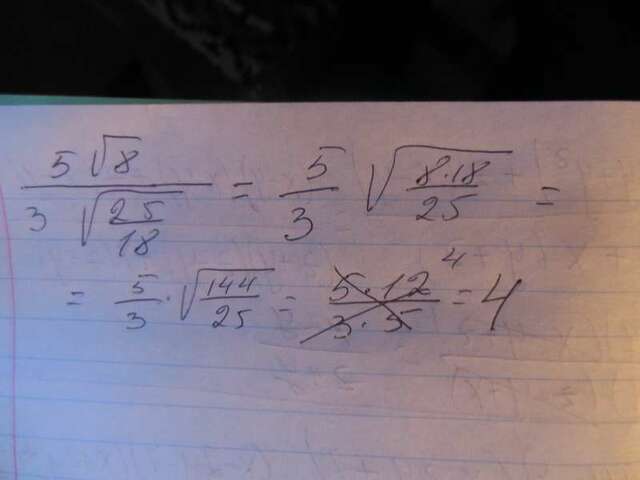 5√8 / 3√(25/18) = 5/3 √(8·18/25) =
= 5/3 · √(144/25) = 5·12/3·5 ⁴ = 4